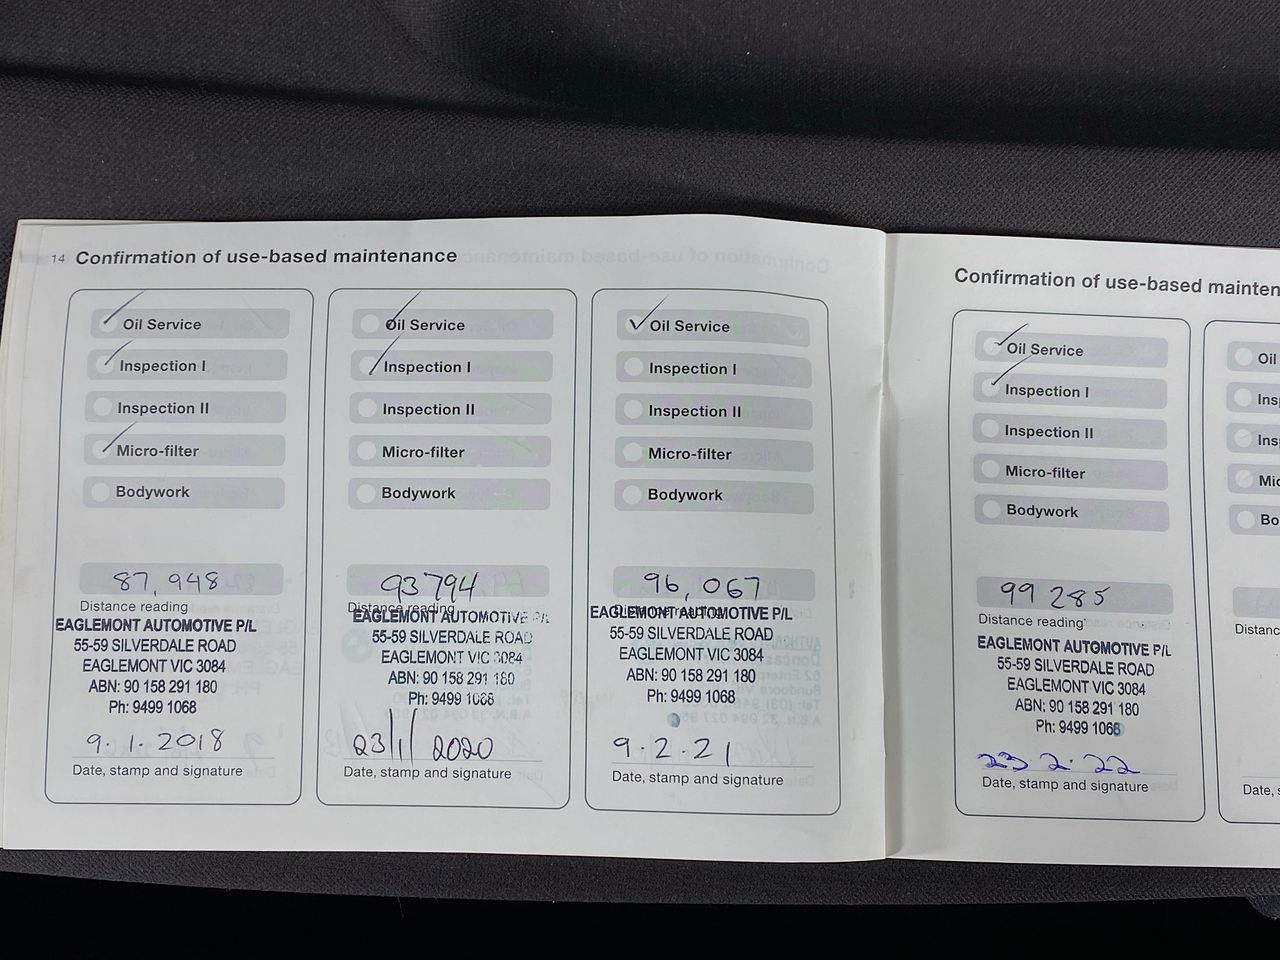 14 Confirmation of use-based maintenance
Oil Service
Inspection I
Inspection II
Micro-filter
Bodywork
87,948
Distance reading
EAGLEMONT AUTOMOTIVE P/L
55-59 SILVERDALE ROAD
EAGLEMONT VIC 3084
ABN: 90 158 291 180
Ph: 9499 1068
9.1.2018
Date, stamp and signature
Oil Service
Inspection I
Inspection II
Micro-filter
Bodywork
93794
Distance reading
EAGLEMONT AUTOMOTIVE P/L
55-59 SILVERDALE ROAD
EAGLEMONT VIC 3084
ABN: 90 158 291 180
Ph: 9499 1068
23/1/2020
Date, stamp and signature
Oil Service
Inspection I
Inspection II
Micro-filter
Bodywork
96,067
Distance reading
EAGLEMONT AUTOMOTIVE P/L
55-59 SILVERDALE ROAD
EAGLEMONT VIC 3084
ABN: 90 158 291 180
Ph: 9499 1068
9.2.21
Date, stamp and signature
Confirmation of use-based mainten
Oil Service
Inspection I
Inspection II
Micro-filter
Bodywork
99285
Distance reading
EAGLEMONT AUTOMOTIVE P/L
55-59 SILVERDALE ROAD
EAGLEMONT VIC 3084
ABN: 90 158 291 180
Ph: 9499 1068
23.2.22
Date, stamp and signature
Oil
Ins
Ins
Mic
Bo
Distanc
Date, s